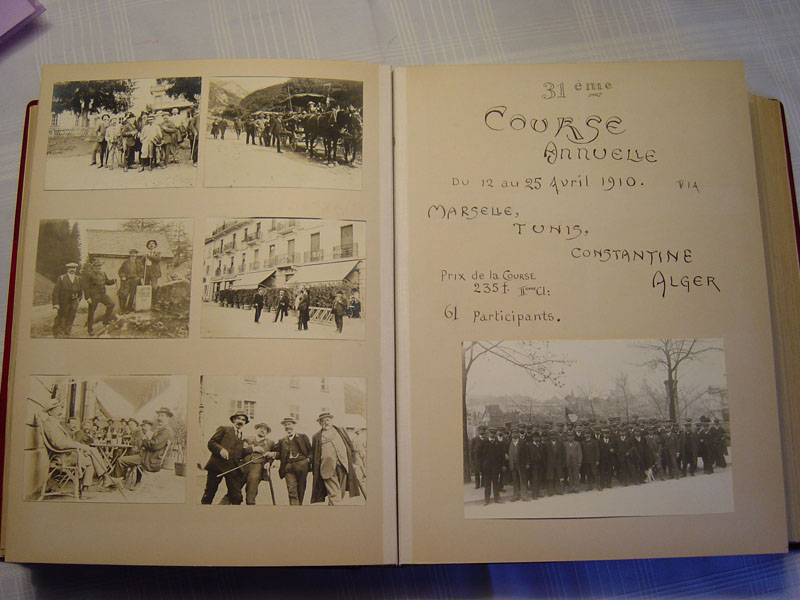 31 ème
COURSE
ANNUELLE
DU 12 au 25 Avril 1910. VIA
MARSELLE,
TUNIS,
CONSTANTINE
ALGER
Prix de la COURSE
235f. IIème Cl:
61 Participants.